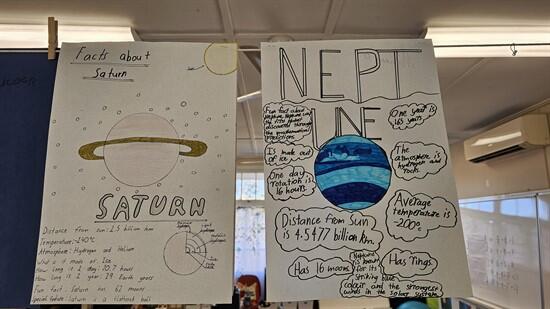 Facts about
Saturn
SATURN
Distance from sun: 1.5 billion km
Temperature: -140°C
Atmosphere: Hydrogen and Helium
What is it made of: Ice
How long is 1 day: 10.7 hours
How long is 1 year: 29 Earth years
Fun fact: Saturn has 62 moons
Special feature: Saturn is a
NEPT
UNE
Fun fact about
Neptune, Neptune was
the first planet
discovered through
mathematical
predictions
One year is
165 years
Is made out
of ice
The
atmosphere is
hydrogen and
rocks.
One day
rotation is
16 hours
Average
temperature is
-200°c
Distance from Sun
is 4.5477 billion km
Has 16 moons
Neptune
is
for its
striking blue
colour, and the strongest
winds in the solar system
Has rings